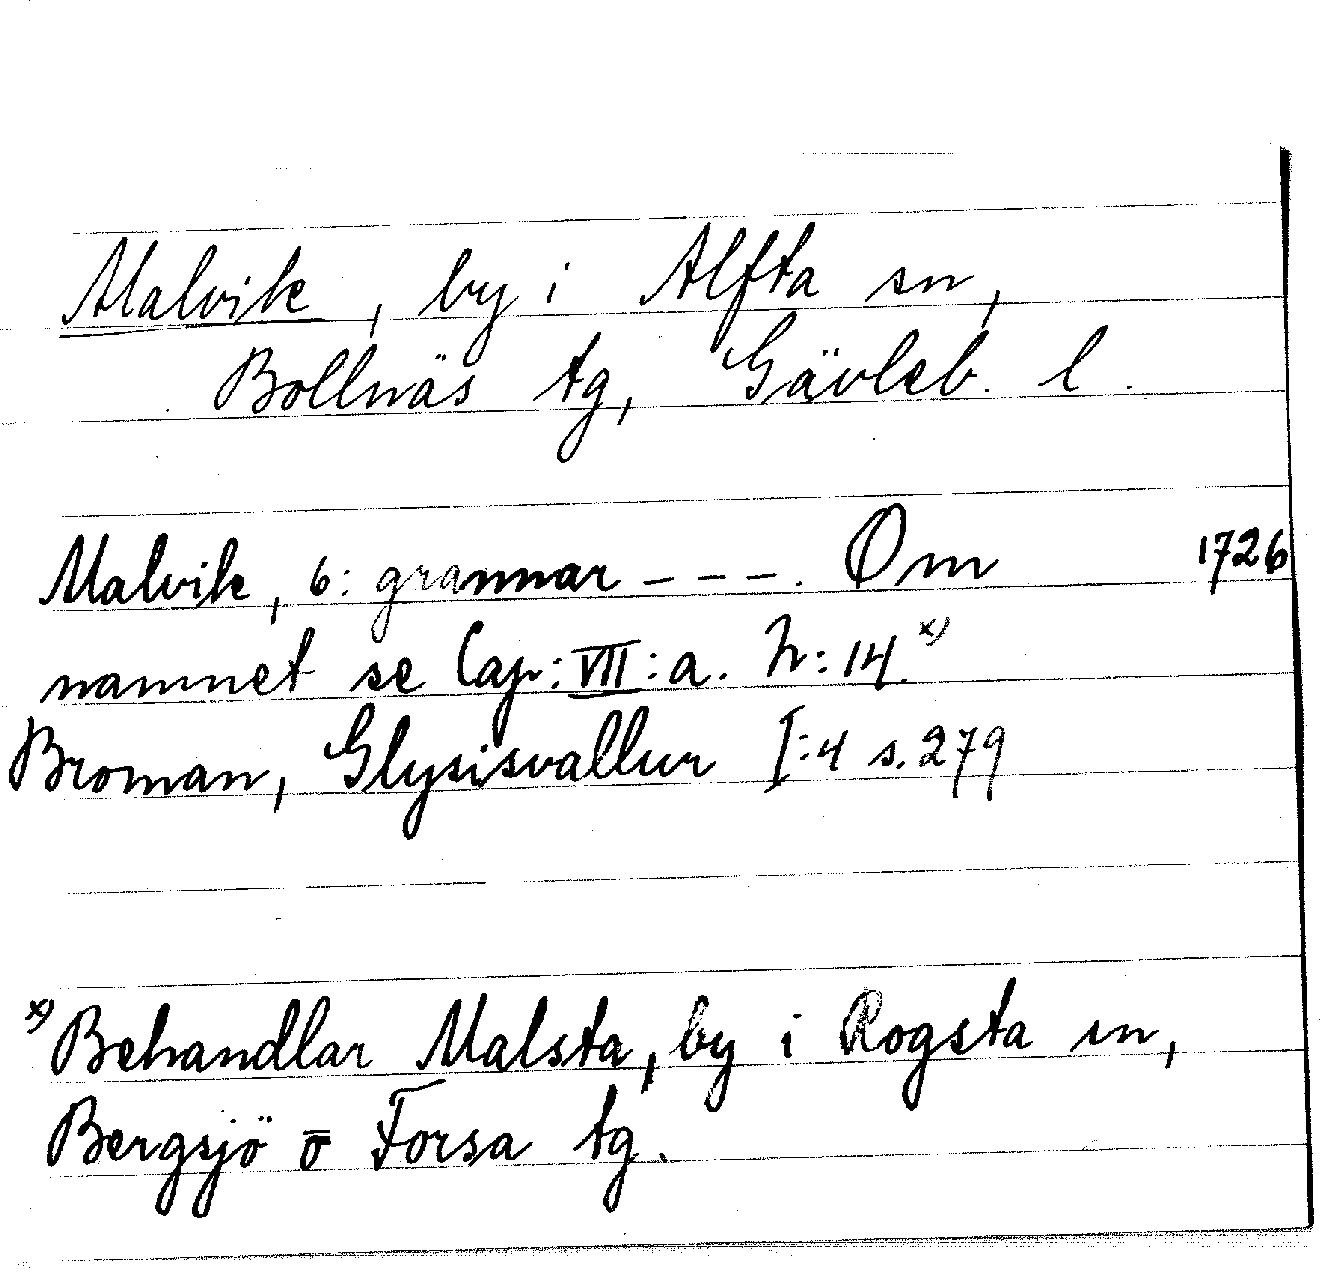 Malvik, by i Alfta sn,
Bollnäs tg, Gävleb. l.
Malvik, 6: grannar – – –. Om 1726
namnet se Cap: VII: a. N: 14.x)
Broman, Glysisvallur I:4 s. 279
x) Behandlar Malsta, by i Rogsta sn,
Bergsjö o̅ Forsa tg.